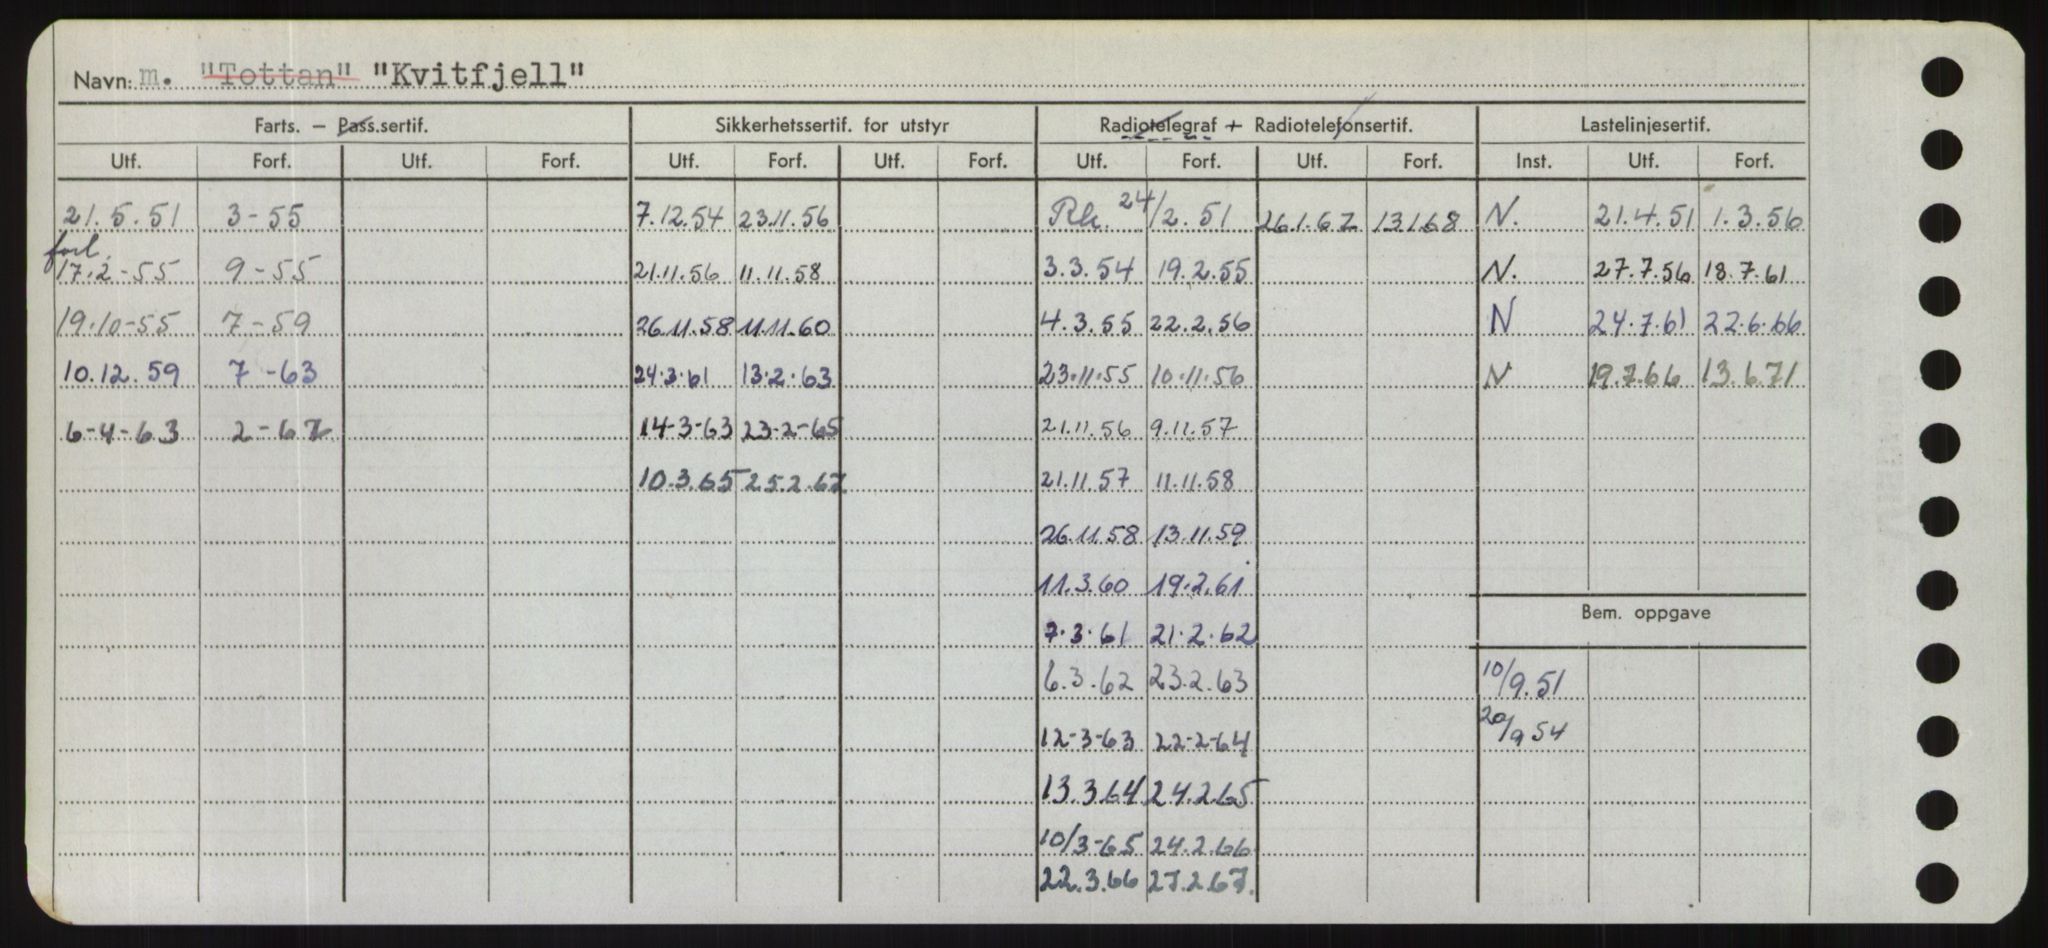 Navn: m. "Tottan" "Kvitfjell"
Farts. – Pass.sertif. Sikkerhetssertif. for utstyr Radiotelegraf + Radiotelefonsertif. Lastelinjesertif.
Utf. Forf. Utf. Forf. Utf. Forf. Utf. Forf. Utf. Forf. Utf. Forf. Inst. Utf. Forf.
21.5.51 3-55 7.12.54 23.11.56 Rk. 24/2.51 26.1.67 13.1.68 N. 21.4.51 1.3.56
forl.
17.2-55 9-55 21.11.56 11.11.58 3.3.54 19.2.55 N. 27.7.56 18.7.61
19.10-55 7-59 26.11.58 11.11.60 4.3.55 22.2.56 N 24.7.61 22.6.66
10.12.59 7-63 24.3.61 13.2.63 23.11.55 10.11.56 N 19.7.66 13.6.71
6-4-63 2-67 14-3-63 23-2-65 21.11.56 9.11.57
10.3.65 25.2.67 21.11.57 11.11.58
26.11.58 13.11.59
11.3.60 19.2.61
Bem. oppgave
7.3.61 21.2.62
6.3.62 23.2.63 10/9.51
12-3-63 22-2-64 20/9 54
13.3.64 24.2.65
10/3-65 24.2.66
22.3.66 27.2.67.